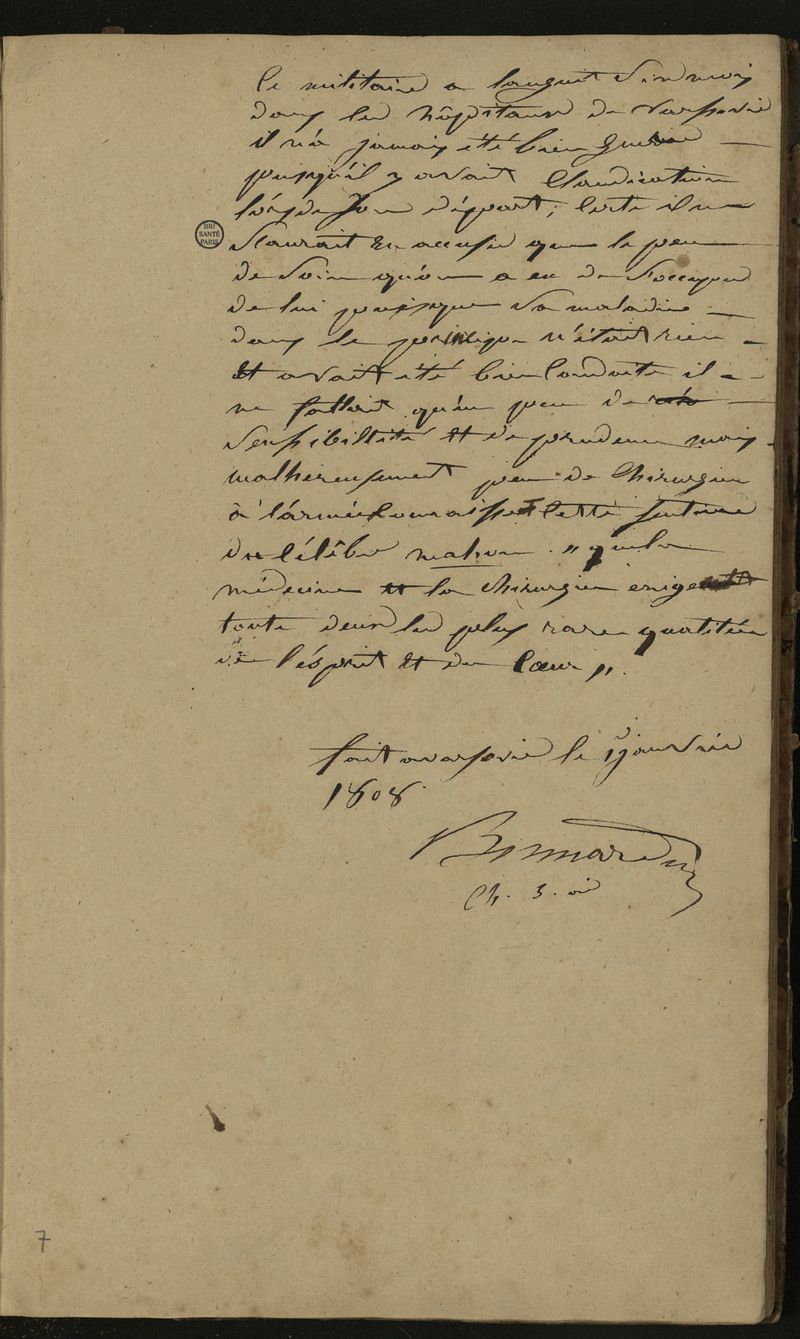 Ce militaire a langui six mois
dans les hôpitaux de varsovie
il n'a jamais été bien guéri
puisqu'il y avait Claudication
lors de son départ; Certe il ne
Scaurait en accuser que le peu
de Soin qu'on a eu de S'occuper
de lui puisque Sa maladie
dans le principe n'était rien
et avait été bien Conduite il
ne falloit qu'un peu de
Sensibilité et de prudence mais
malhereusement peu de Chirurgien
à l'armée Connaisse Cette Sentence
du Célèbre mahon. " que la
médecine et la chirurgie exige
toute deux les plus rares qualitées
de l'ésprit et du Cœur ".
fait a varsovie le janvier
1808
Ch. 3.
BIU
SANTÉ
PARIS
7